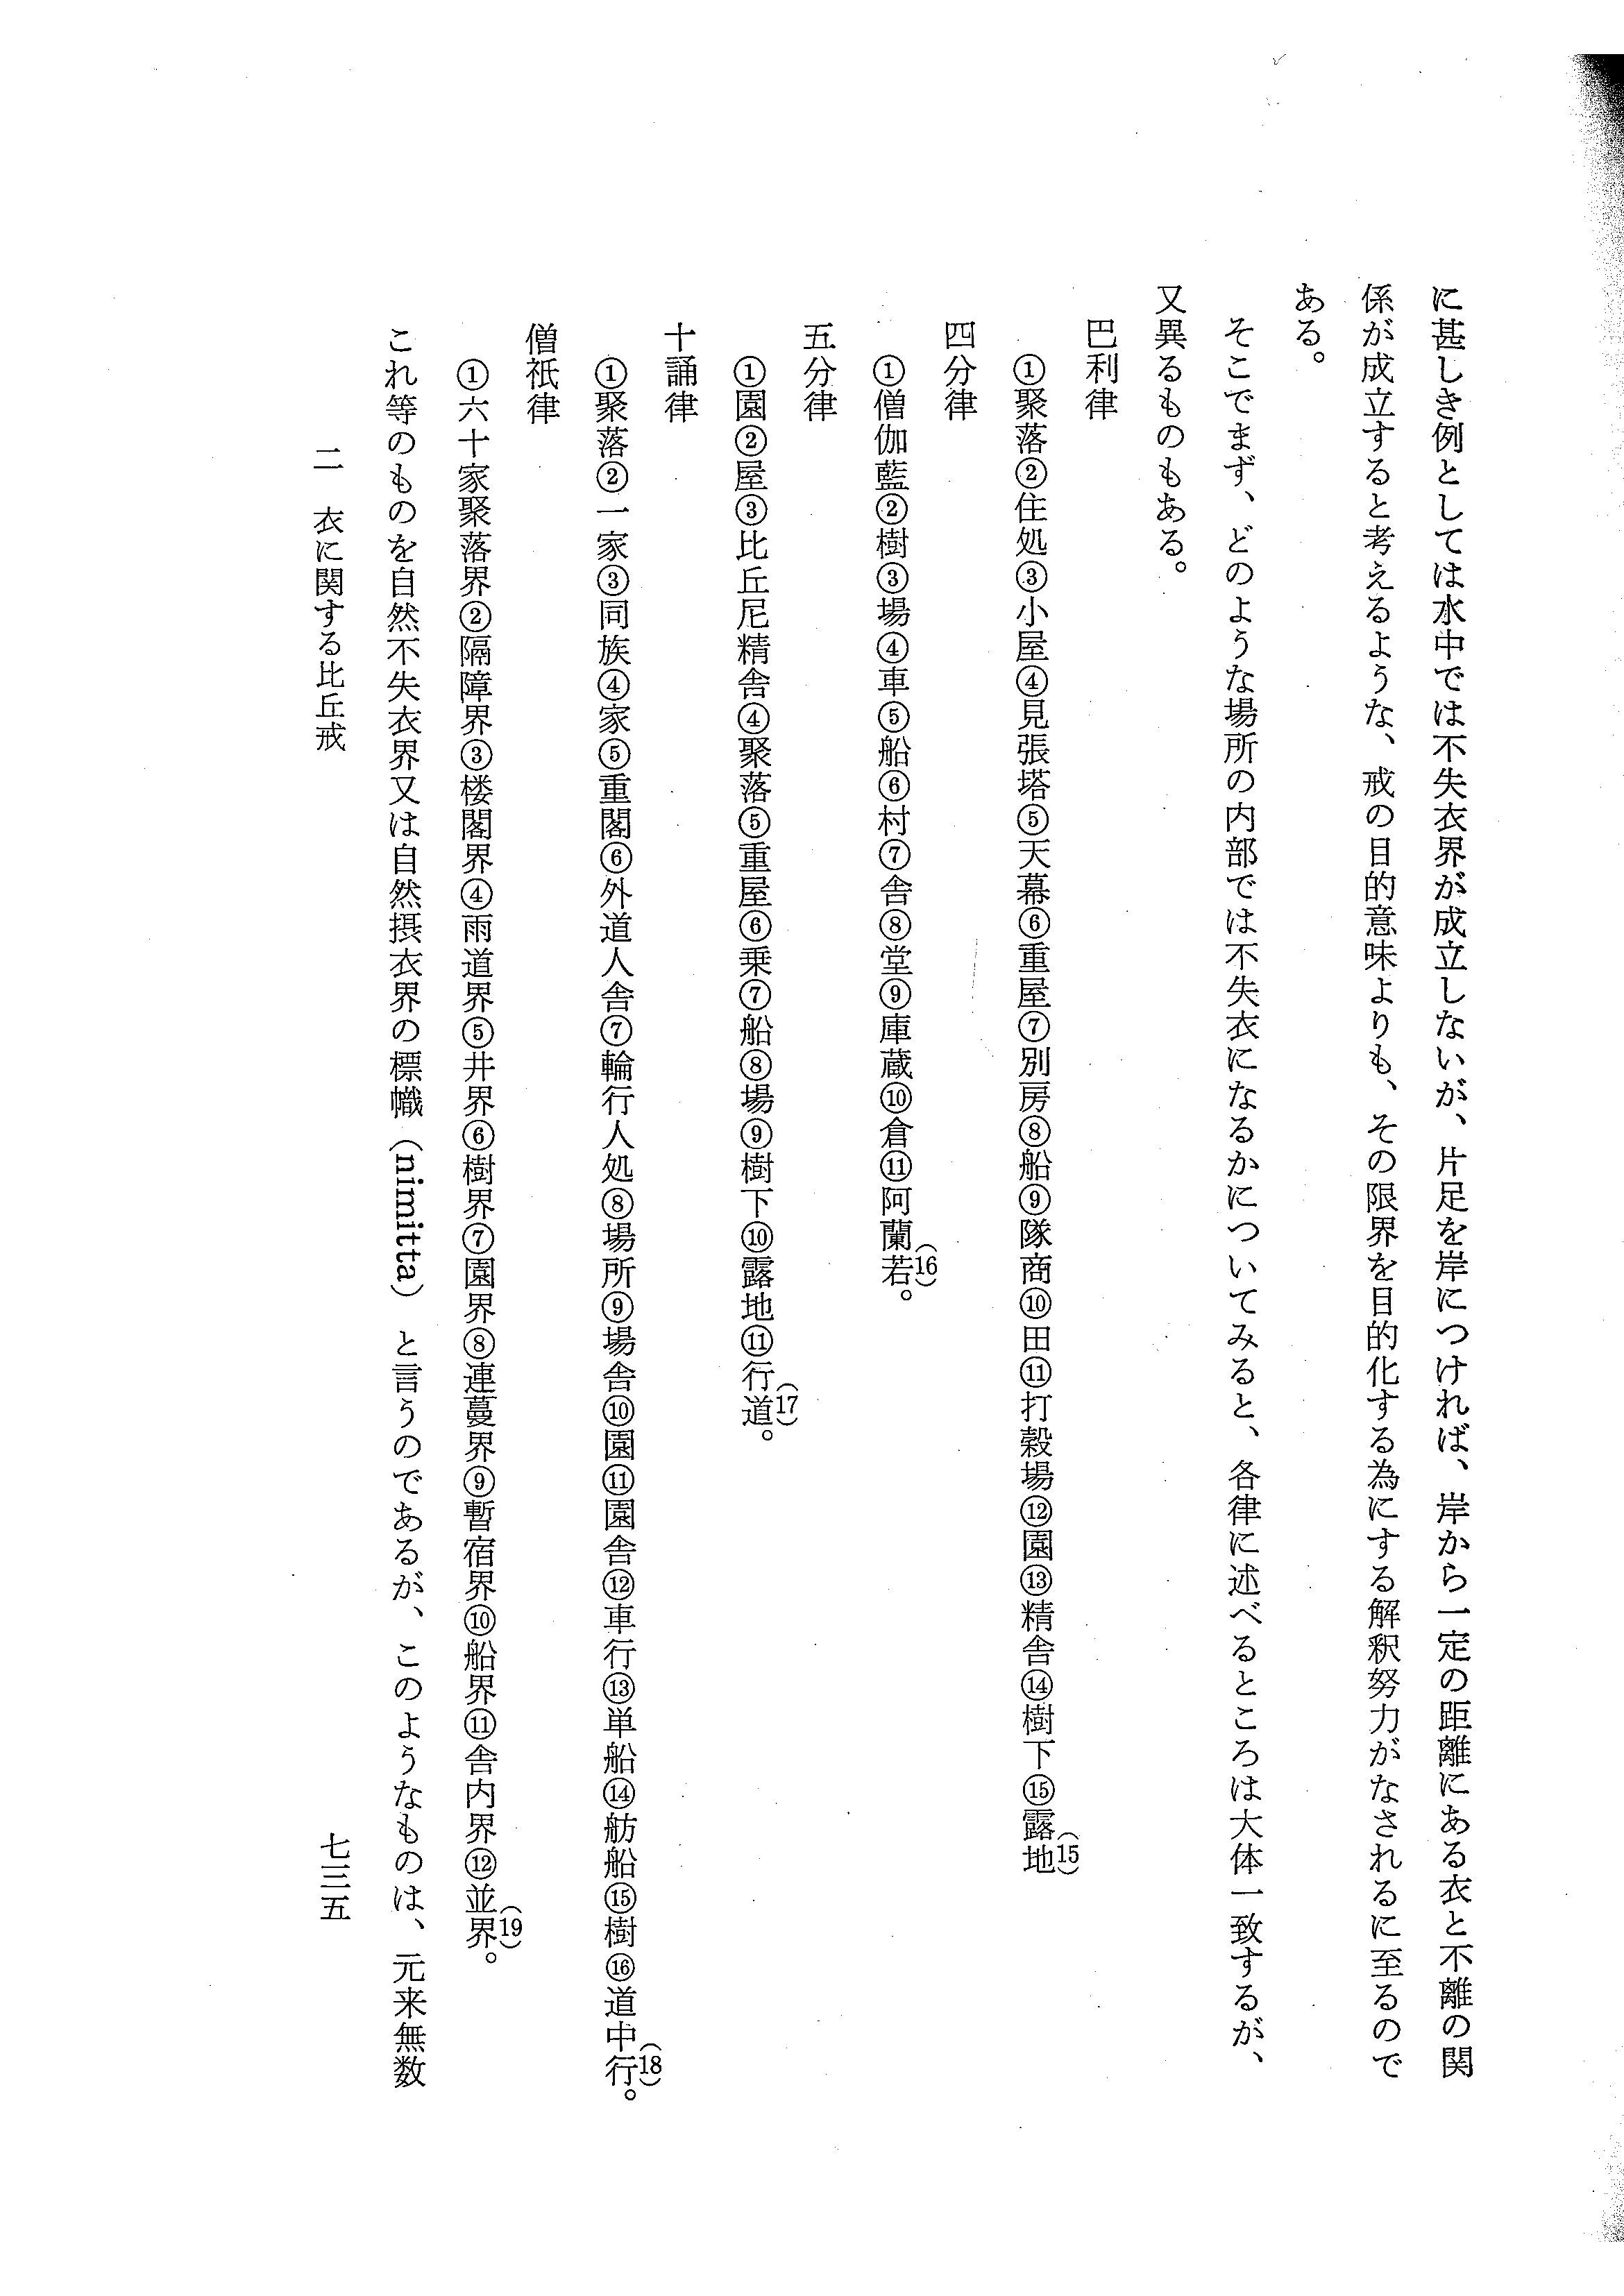 に甚しき例としては水中では不失衣界が成立しないが、片足を岸につければ、岸から一定の距離にある衣と不離の関
係が成立すると考えるような、戒の目的意味よりも、その限界を目的化する為にする解釈努力がなされるに至るので
ある。
そこでまず、どのような場所の内部では不失衣になるかについてみると、各律に述べるところは大体一致するが、
又異るものもある。
巴利律
①聚落②住処③小屋④見張塔⑤天幕⑥重屋⑦別房⑧船⑨隊商⑩田⑪打穀場⑫園⑬精舎⑭樹下⑮露地(15)
四分律
①僧伽藍②樹③場④車⑤船⑥村⑦舎⑧堂⑨庫蔵⑩倉⑪阿蘭若。(16)
五分律
①園②屋③比丘尼精舎④聚落⑤重屋⑥乗⑦船⑧場⑨樹下⑩露地⑪行道。(17)
十誦律
①聚落②一家③同族④家⑤重閣⑥外道人舎⑦輪行人処⑧場所⑨場舎⑩園⑪園舎⑫車行⑬単船⑭舫船⑮樹⑯道中行。(18)
僧祇律
①六十家聚落界②隔障界③楼閣界④雨道界⑤井界⑥樹界⑦園界⑧連蔓界⑨暫宿界⑩船界⑪舎内界⑫並界。(19)
これ等のものを自然不失衣界又は自然摂衣界の標幟(nimitta)と言うのであるが、このようなものは、元来無数
二 衣に関する比丘戒
七三五